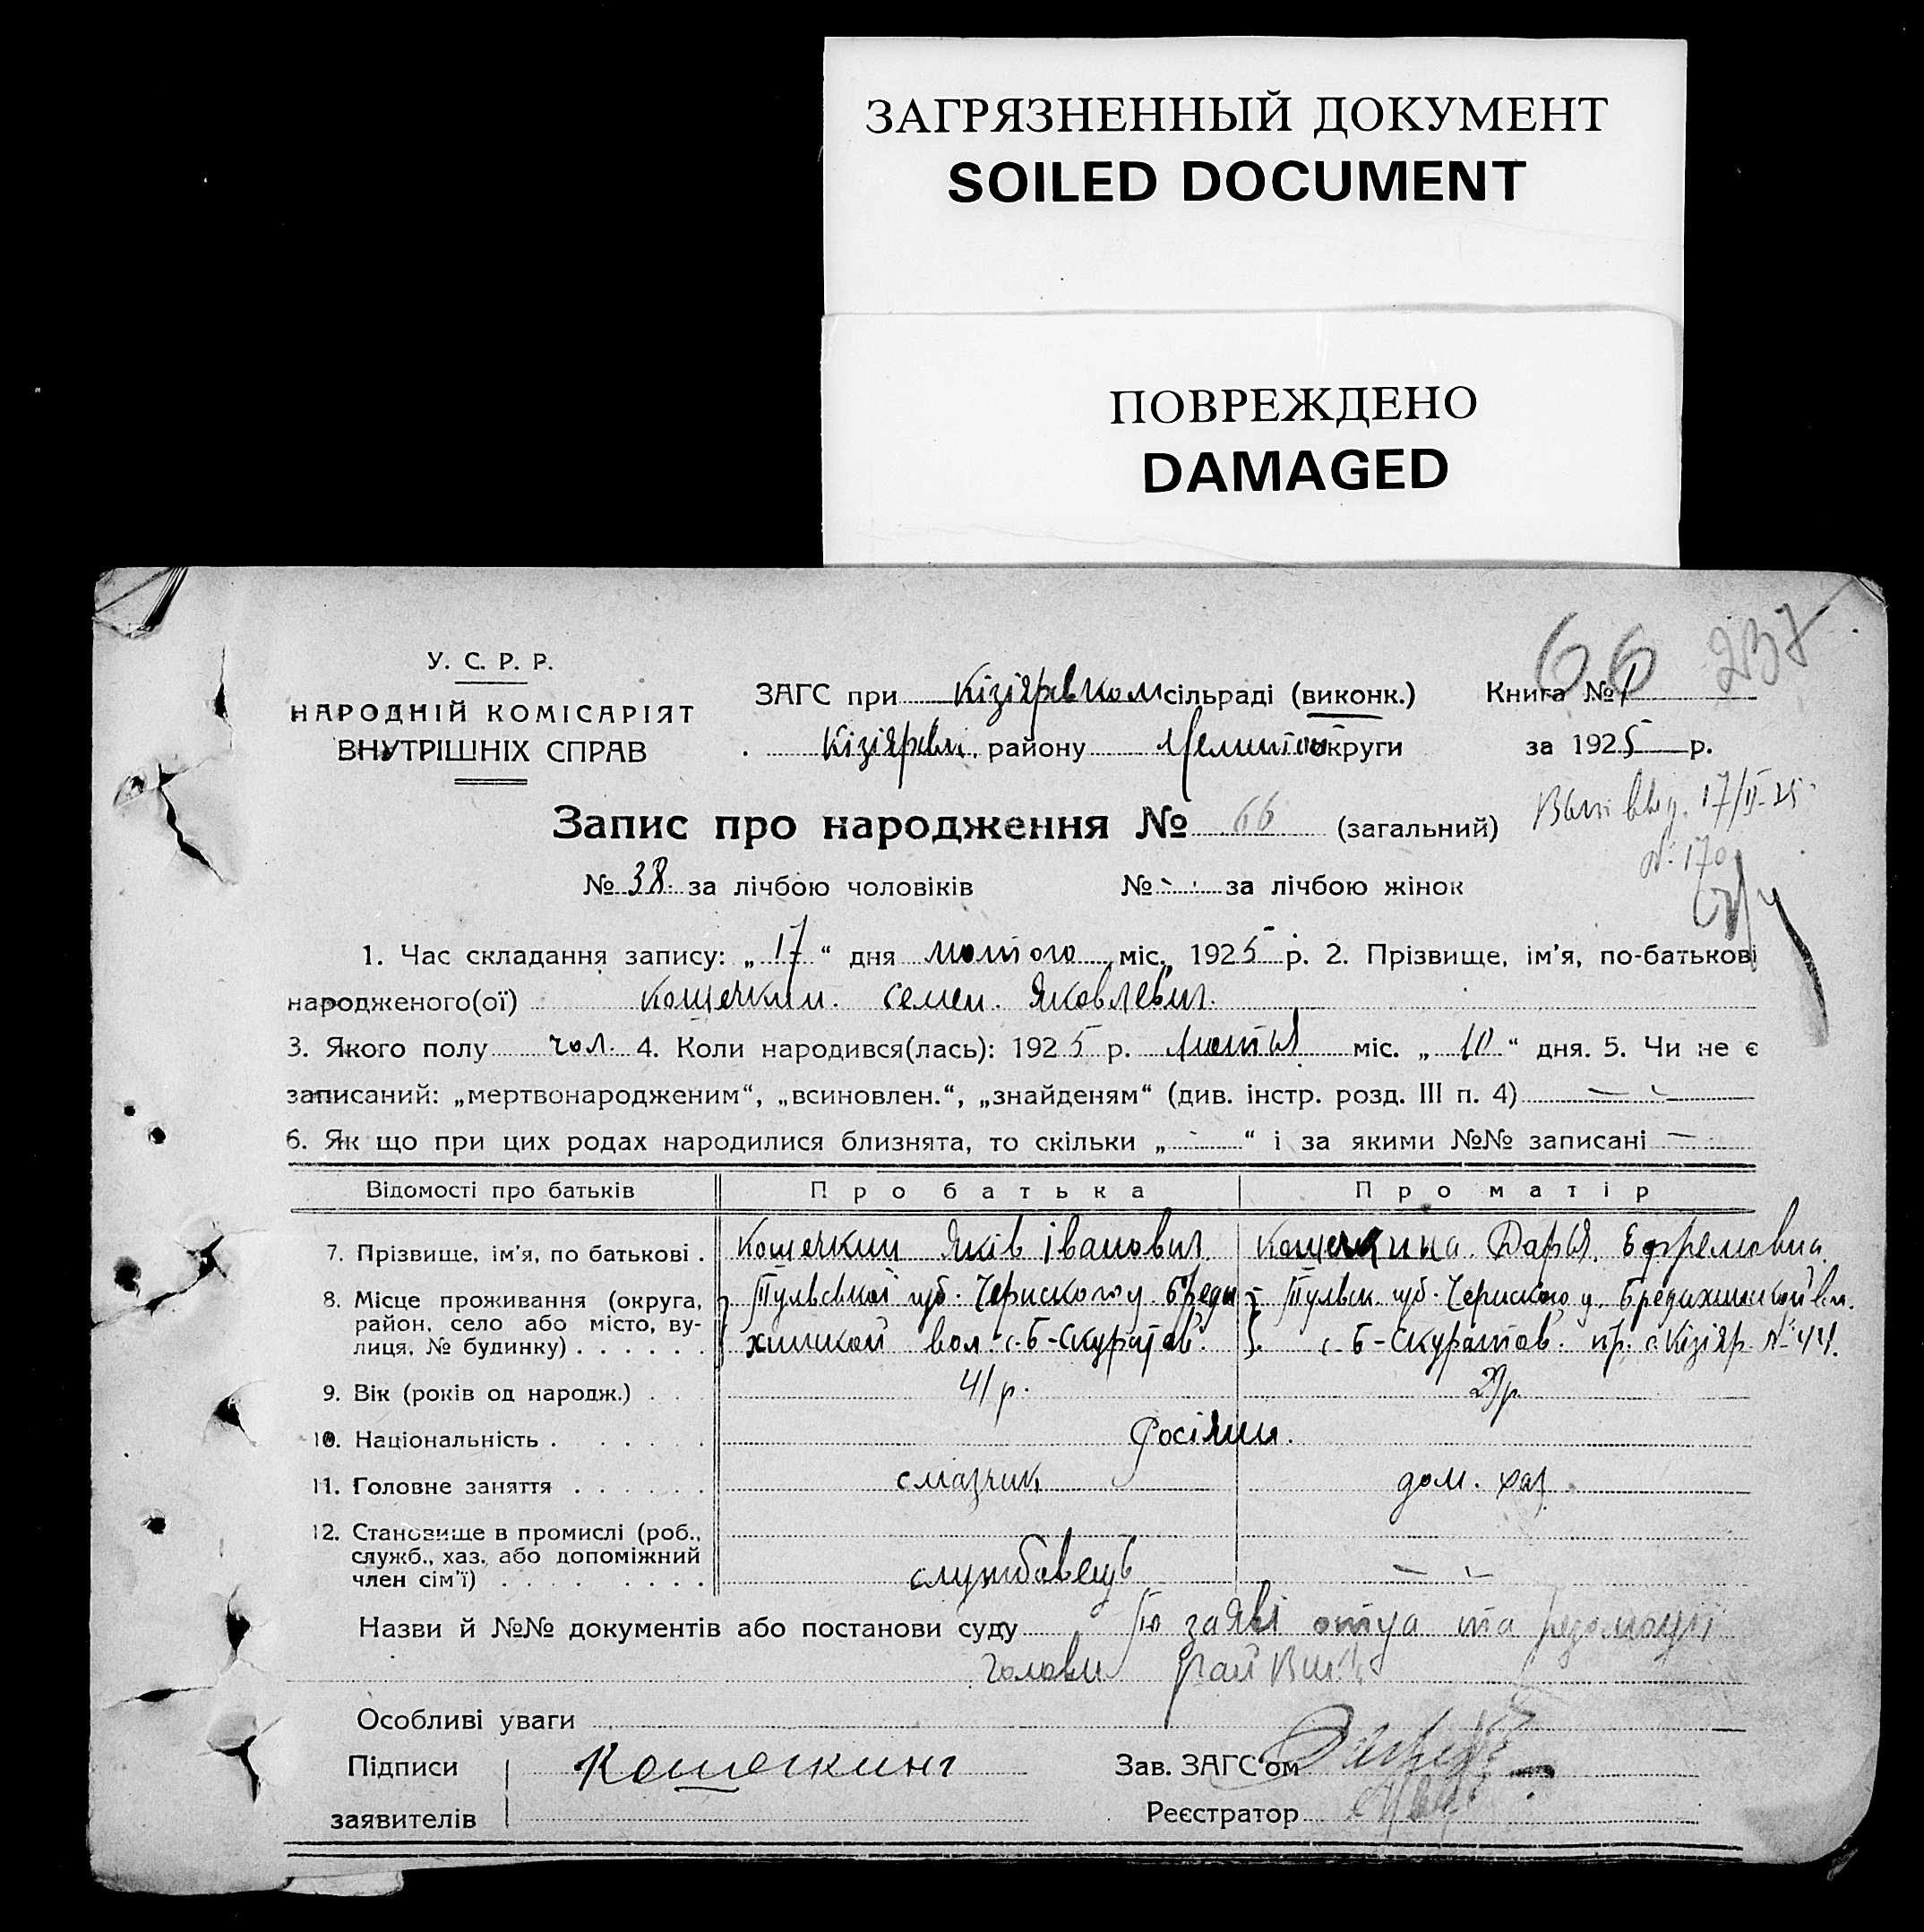 ЗАГРЯЗНЕННЫЙ ДОКУМЕНТ
SOILED DOCUMENT
ПОВРЕЖДЕНО
DAMAGED
66 237
У. С. Р. Р.
НАРОДНІЙ КОМІСАРІЯТ
ВНУТРІШНІХ СПРАВ
ЗАГС при Кізіяревком сільраді (виконк.) Книга № 1
Кізіяревск. району Мелитоп округи за 1925 р.
Запис про народження № 66 (загальний)
17/II-25
№ 170
№ 38. за лічбою чоловіків № - за лічбою жінок
1. Час складання запису: „ 17 “ дня лютого міс. 1925 р. 2. Прізвище, ім'я, по-батькові
народженого(ої) Кощечкин. Семен. Яковлевич.
3. Якого полу чол. 4. Коли народився(лась): 1925 р. лютня міс. „ 10 “ дня. 5. Чи не є
записаний: „мертвонародженим“, „всиновлен.“, „знайденям“ (див. інстр. розд. III п. 4) — —
6. Як що при цих родах народилися близнята, то скільки „ - “ і за якими №№ записані —
Відомості про батьків Про батька Про матір
7. Прізвище, ім'я, по батькові . Кощечкин Яків Іванович Кощечкина Дарья Ефремовна
8. Місце проживання (округа, Тульської губ. Чернского у. Бреды Тульск. губ. Чернского у. Бредихинской вол.
район, село або місто, ву-
лиця, № будинку) . . . . . . хинской вол. с. Б-Скуратов. с. Б-Скуратов. пр. с. Кізіяр № 44.
9. Вік (років од народж.) . . . 41 р. 29 р.
10. Національність . . . . . . . Росіяни.
11. Головне заняття . . . . . . смазчик дом. хаз.
12. Становище в промислі (роб.,
служб., хаз., або допоміжний
член сім'ї) . . . . . . . . службовець — —
Назви й №№ документів або постанови суду По заяві отца та резолюції
голови райВик.
Особливі уваги
Підписи Кощечкинг Зав. ЗАГС'ом
заявителів Реєстратор